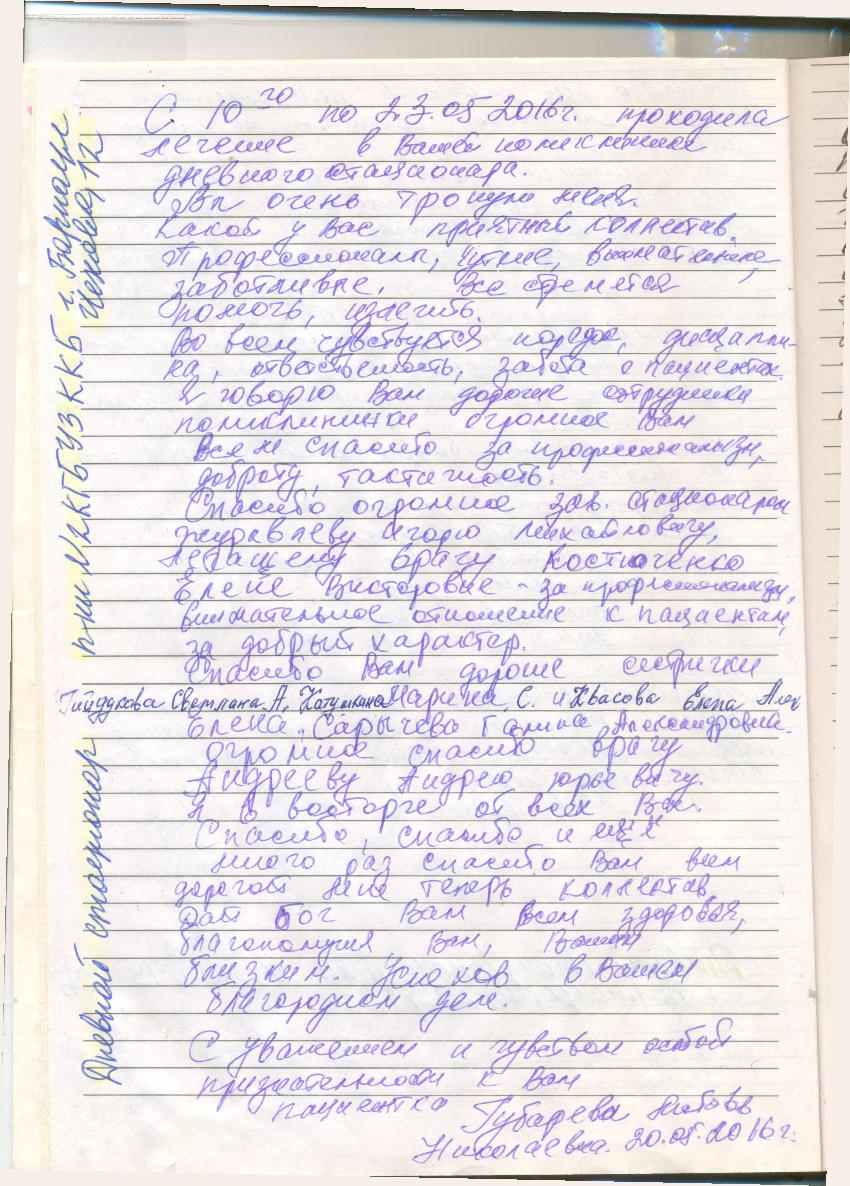 С 10го по 23.05 2016г. проходила
лечение в Вашей поликлинике
дневного стационара.
Вы очень тронули меня.
Какой у Вас приятный коллектив.
Профессионалы, чуткие, внимательные,
заботливые. Все стремятся
помочь, излечить.
Во всем чувствуется порядок, дисципли-
на, ответственность, забота о пациентах.
Я говорю Вам дорогие сотрудники
поликлиники огромное Вам
Всем спасибо за профессионализм,
доброту, тактичность.
Спасибо огромное зав. стационаром
Журавлеву Игорю Михайловичу,
лечащему врачу Костюченко
Елене Викторовне - за профессионализм,
внимательное отношение к пациентам,
за добрый характер.
Спасибо Вам дорогие сестрички
Гайдукова Светлана А, Катушкина Марина С. и Квасова Елена Алек
Елена, Сарычева Галина Александровна.
Огромное спасибо врачу
Андрееву Андрею Юрьевичу.
Я в восторге от всех Вас.
Спасибо, спасибо и ещё
много раз спасибо Вам всем
дорогой мне теперь коллектив
Дай бог Вам Всем здоровья,
благополучия Вам, Вашим
близким. Успехов в Вашем
благородном деле.
С уважением и чувством особой
признательности к Вам
пациентка Губарева
Николаевна. 20.05.2016г.
Дневной стационар п-ки №2 КГБУЗ ККБ г. Барнаул
Чехова, 12